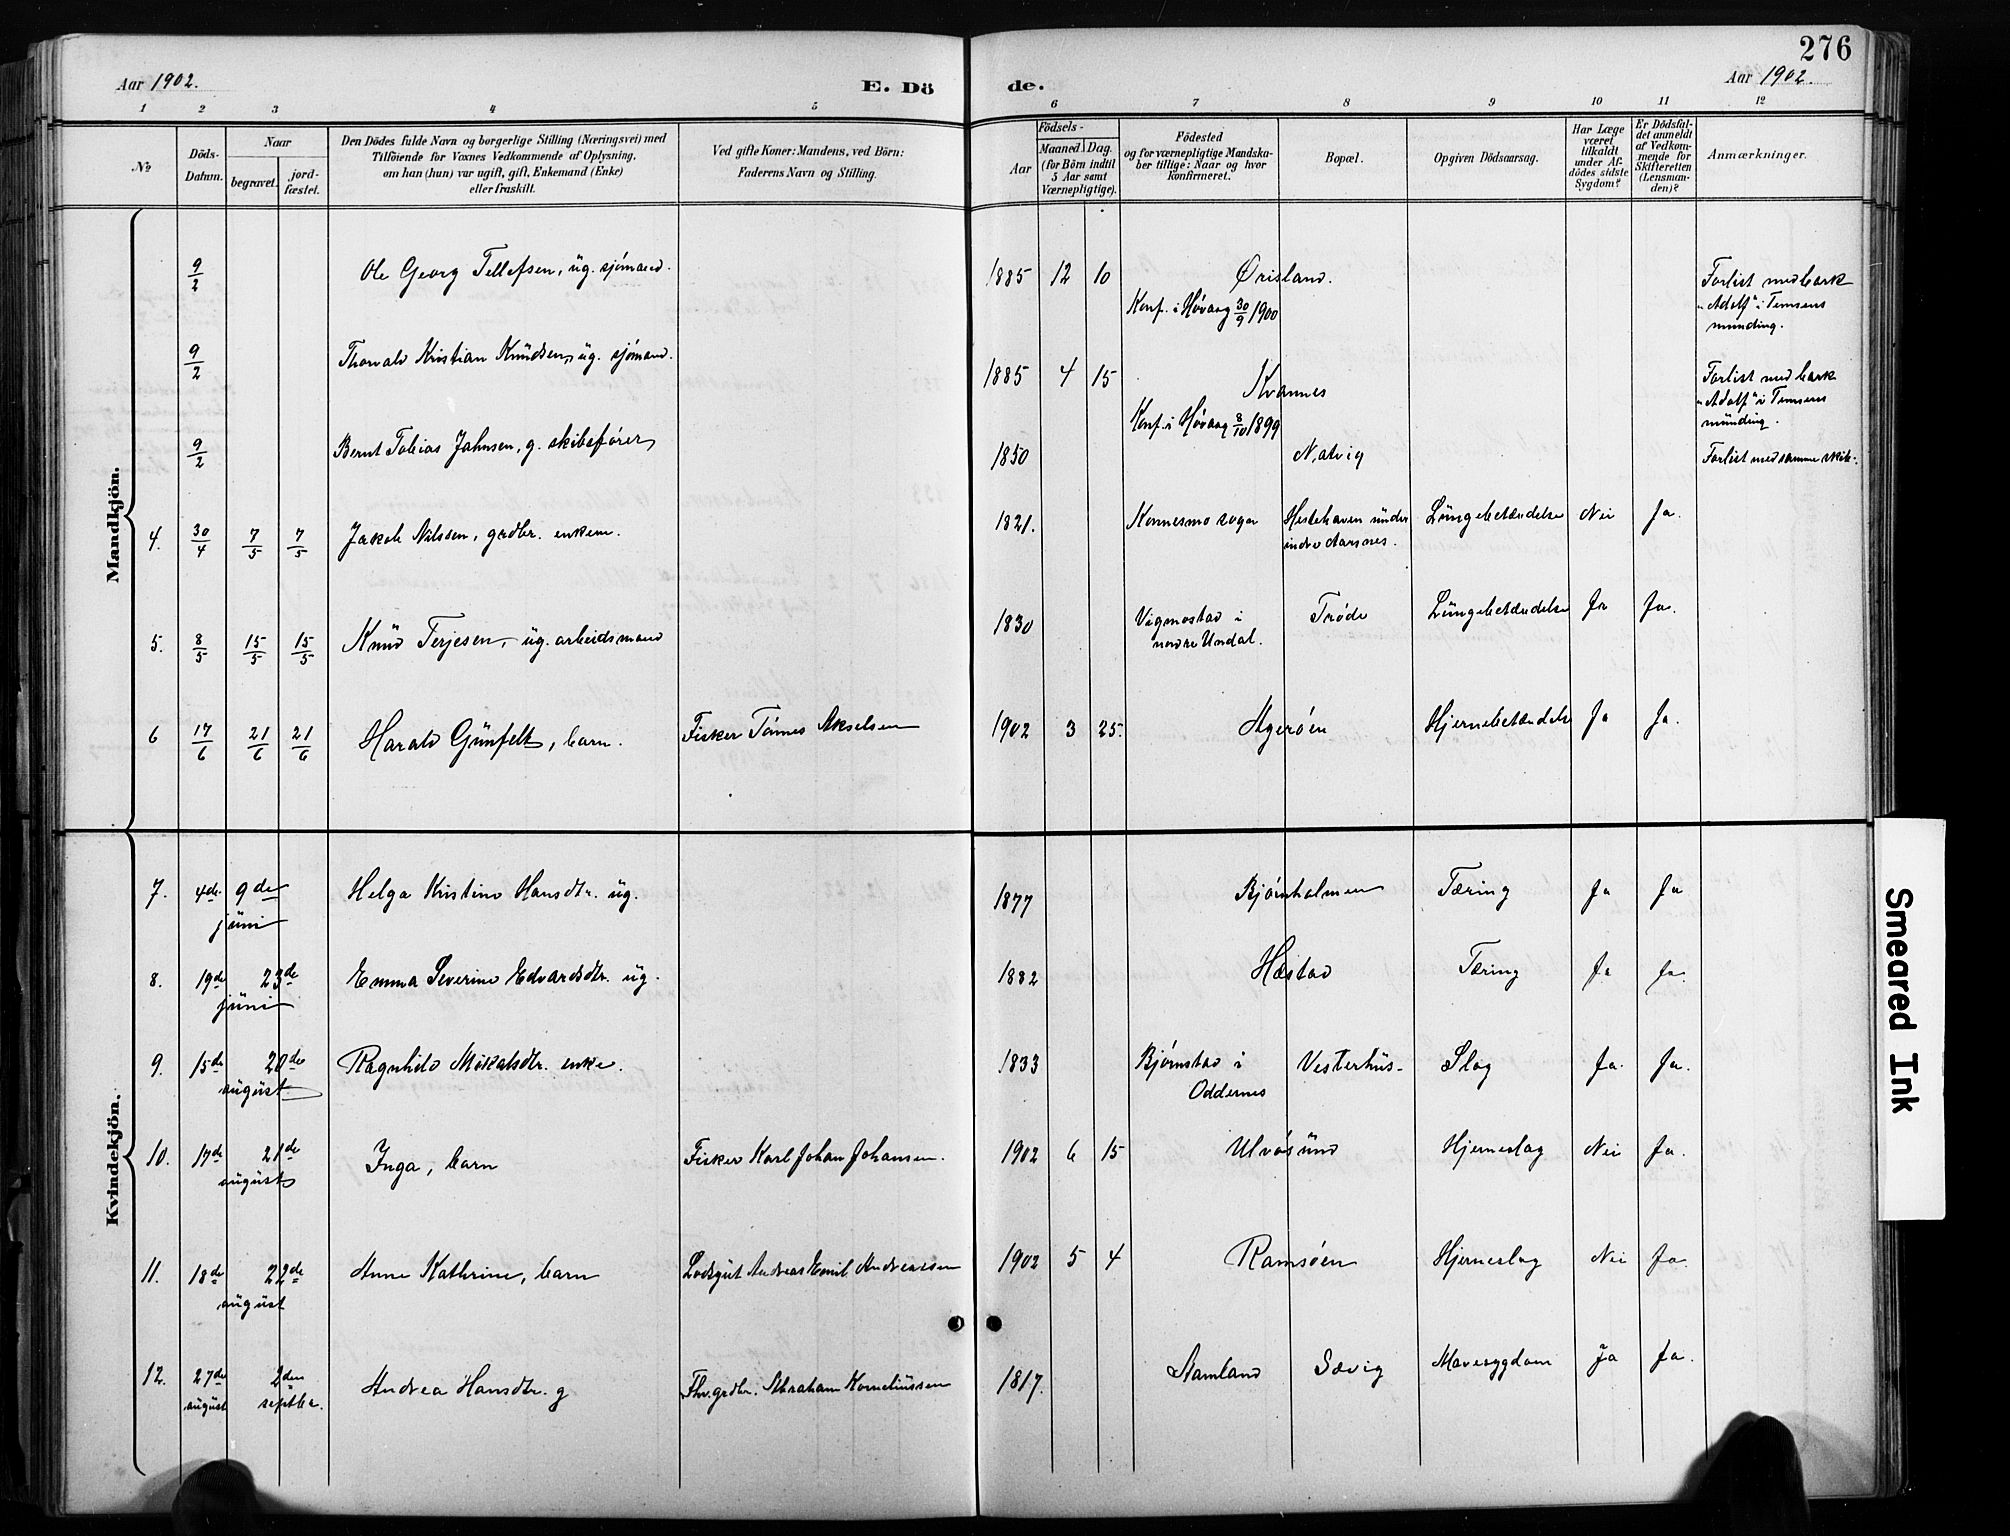 276
Aar 1902.
E. Dö
de.
Aar 1902.
1 2 3 4 5 6 7 8 9 10 11 12
No
Döds-Datum.
Naar
begravet.
jord-fæstet.
Den Dödes fulde Navn og borgerlige Stilling (Næringsvei) med
Tilföiende for Voxnes Vedkommende af Oplysning,
om han (hun) var ugift, gift, Enkemand (Enke)
eller fraskilt.
Ved gifte Koner: Mandens, ved Börn:
Faderens Navn og Stilling.
Födsels-
Aar
Maaned Dag.
(for Börn indtil
5 Aar samt
Værnepligtige).
Födested
og for værnepligtige Mandska-
ber tillige: Naar og hvor
konfirmeret.
Bopæl.
Opgiven Dödsaarsag.
Har Læge
været
tilkaldt
under Af-
dödes sidste
Sygdom?
Er Dödsfal-
det anmeldt
af Vedkom-
mende for
Skifteretten
(Lensman-
den)?
Anmærkninger.
Mandkjön.
9/2 Ole Georg Tellefsen, ug. sjömand. 1885 12 10 Ørisland.
Konf. i Høvaag 30/9 1900
Forlist med bark
"Adolf" i Temsens
munding.
9/2 Thorvald Kristian Knudsen, ug. sjömand. 1885 4 15 Kvannes
Konf. i Høvaag 8/10 1899
Forlist med bark
"Adolf" i Temsens
munding.
9/2 Bernt Tobias Jahnsen, g. skibsförer 1850 Natvig Forlist med samme skib.
4. 30/4 7/5 7/5 Jakob Nilssen, grdbr. enkem. 1821. Konnesmo sogn Hestehaven under
indre Aarsnes. Lungebetændelse Nei Ja.
5. 8/5 15/5 15/5 Knud Terjesen, ug. arbeidsmand 1830 Vigmostad i
nordre Undal. Tröde Lungebetændelse Ja Ja.
6 17/6 21/6 21/6 Harald Günfelt, barn. Fisker Tönnes Akselsen 1902 3 25. Agerøen Hjernebetændelse Ja Ja.
Kvindekjön.
7. 4de 9de
juni Helga Kristine Hansdtr. ug. 1877 Bjørnholmen Tæring Ja Ja
8. 19de 23de
juni Emma Severine Edvardsdtr. ug. 1882 Hæstad Tæring Ja Ja.
9. 15de 20de
august. Ragnhild Mikalsdtr. enke. 1833 Bjørnstad i
Oddernes Vesterhus- Slag Ja. Ja.
10. 17de 21de
august Inga, barn Fisker Karl Johan Johansen. 1902 6 15 Ulvøsund Hjerneslag Nei Ja.
11. 18de 22de
august Anne Kathrine, barn Lodsgut Andreas Emil Andreassen 1902 5 4 Ramsøen Hjerneslag Nei Ja.
12. 27de 2den
august septbr. Andrea Hansdtr. g Fhv. grdbr. Abraham Korneliussen 1817. Stamland Sævig Mavesygdom Ja Ja.
Smeared Ink